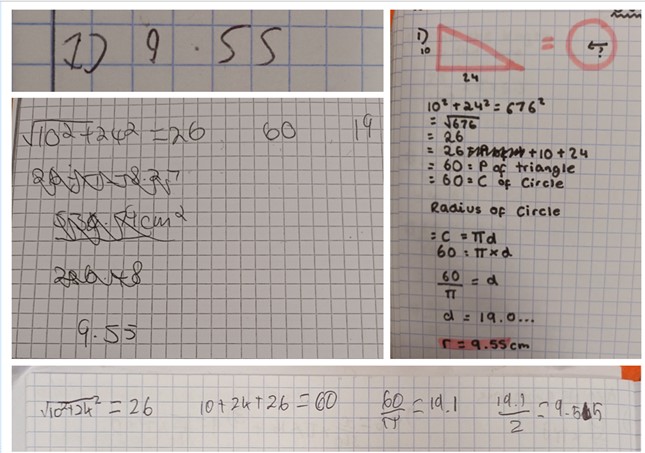 1) 9.55
√10²+24² = 26 60 19
9.55
1)
10
24
=
r?
10² + 24² = 676²
= √676
= 26
= 26 + 10 + 24
= 60 = P of triangle
= 60 = C of Circle
Radius of Circle
= C = πd
60 = π×d
60/π = d
d = 19.0...
r = 9.55cm
√10²+24² = 26 10+24+26 = 60 60/π = 19.1 19.1/2 = 9.55